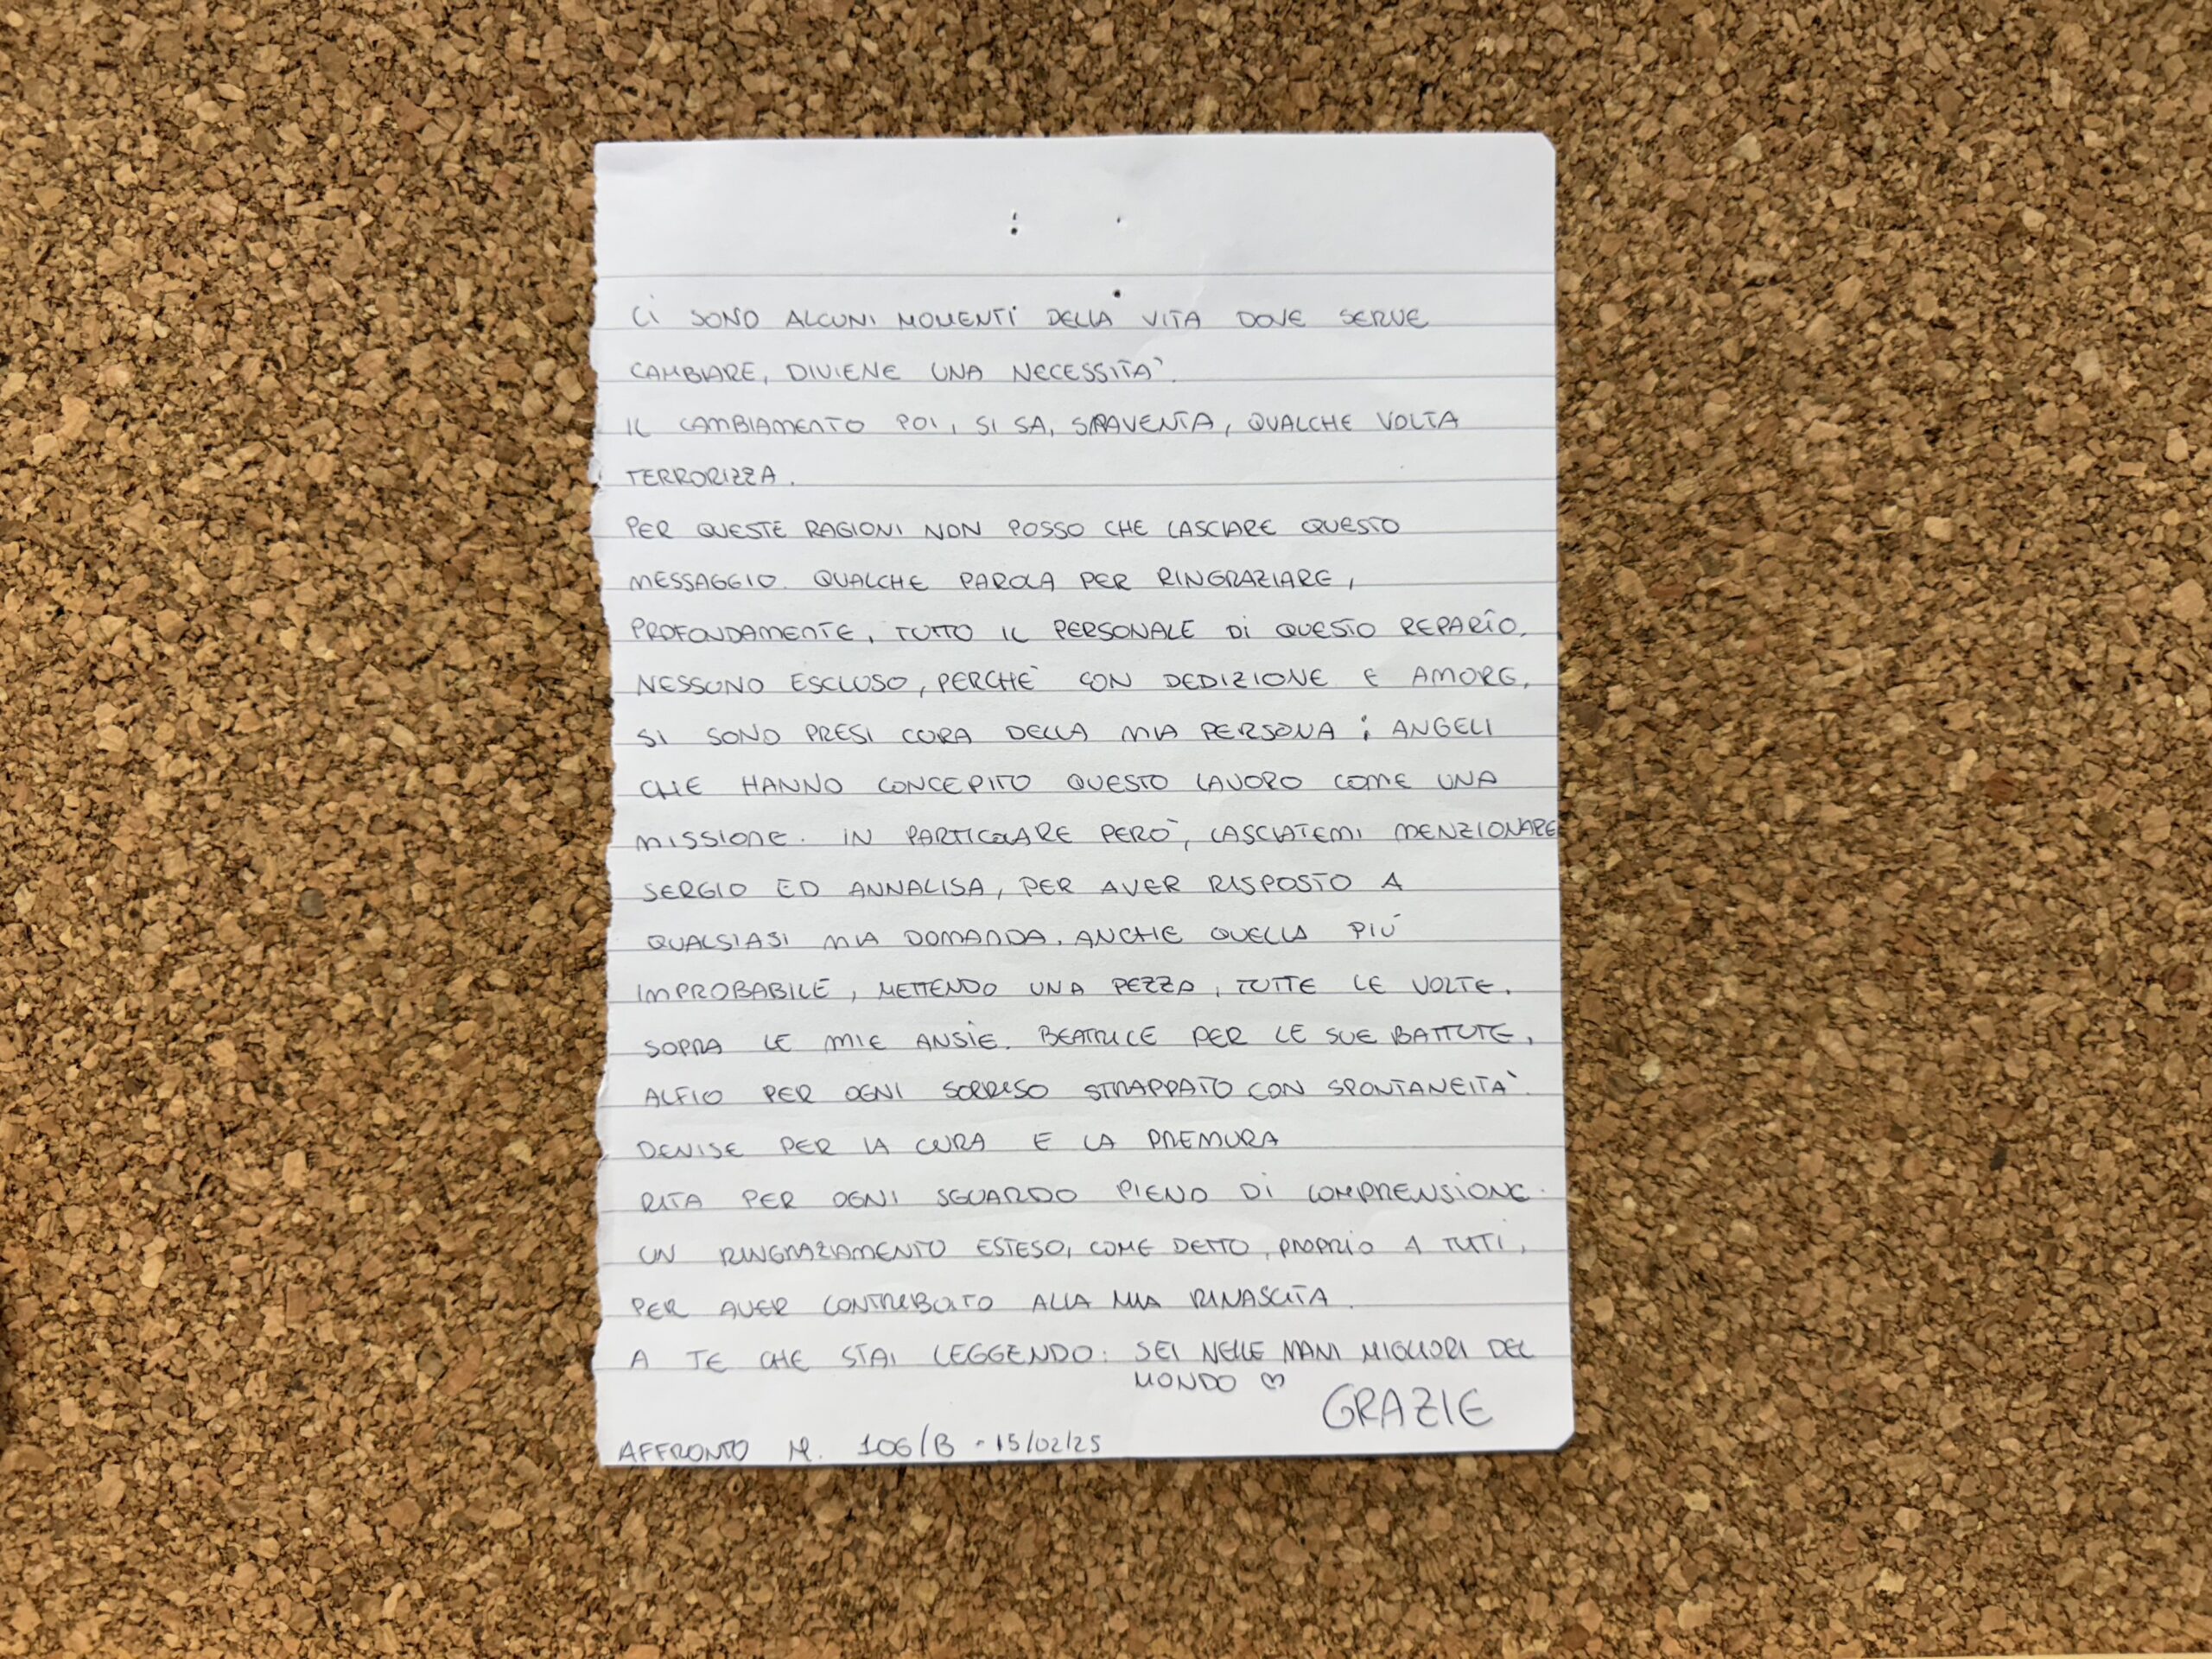 Ci SONO ALCUNI MOMENTi DELLA VITA DOVE SERVE
CAMBIARE, DIVIENE UNA NECESSITA'.
IL CAMBIAMENTO POI, SI SA, SPAVENTA, QUALCHE VOLTA
TERRORIZZA.
PER QUESTE RAGIONI NON POSSO CHE LASCIARE QUESTO
MESSAGGIO. QUALCHE PAROLA PER RINGRAZIARE,
PROFONDAMENTE, TUTTO IL PERSONALE Di QUESTO REPARTO,
NESSUNO ESCLUSO, PERCHE' CON DEDIZIONE E AMORE,
SI SONO PRESI CURA DELLA MIA PERSONA; ANGELI
CHE HANNO CONCEPITO QUESTO LAVORO COME UNA
MISSIONE. IN PARTICOLARE PERO', LASCIATEMI MENZIONARE
SERGIO ED ANNALISA, PER AVER RISPOSTO A
QUALSIASI MIA DOMANDA, ANCHE QUELLA PIÚ
IMPROBABILE, METTENDO UNA PEZZA, TUTTE LE VOLTE,
SOPRA LE MIE ANSIE. BEATRICE PER LE SUE BATTUTE,
ALFIO PER OGNI SORRISO STRAPPATO CON SPONTANEITA'.
DENISE PER LA CURA E LA PREMURA
RITA PER OGNI SGUARDO PIENO DI COMPRENSIONE.
UN RINGRAZIAMENTO ESTESO, COME DETTO, PROPRIO A TUTTI,
PER AVER CONTRIBUITO ALLA MIA RINASCITA.
A TE CHE STAI LEGGENDO: SEI NELLE MANI MIGLIORI DEL
MONDO ♡
GRAZIE
AFFRONTO M. 106/B - 15/02/25